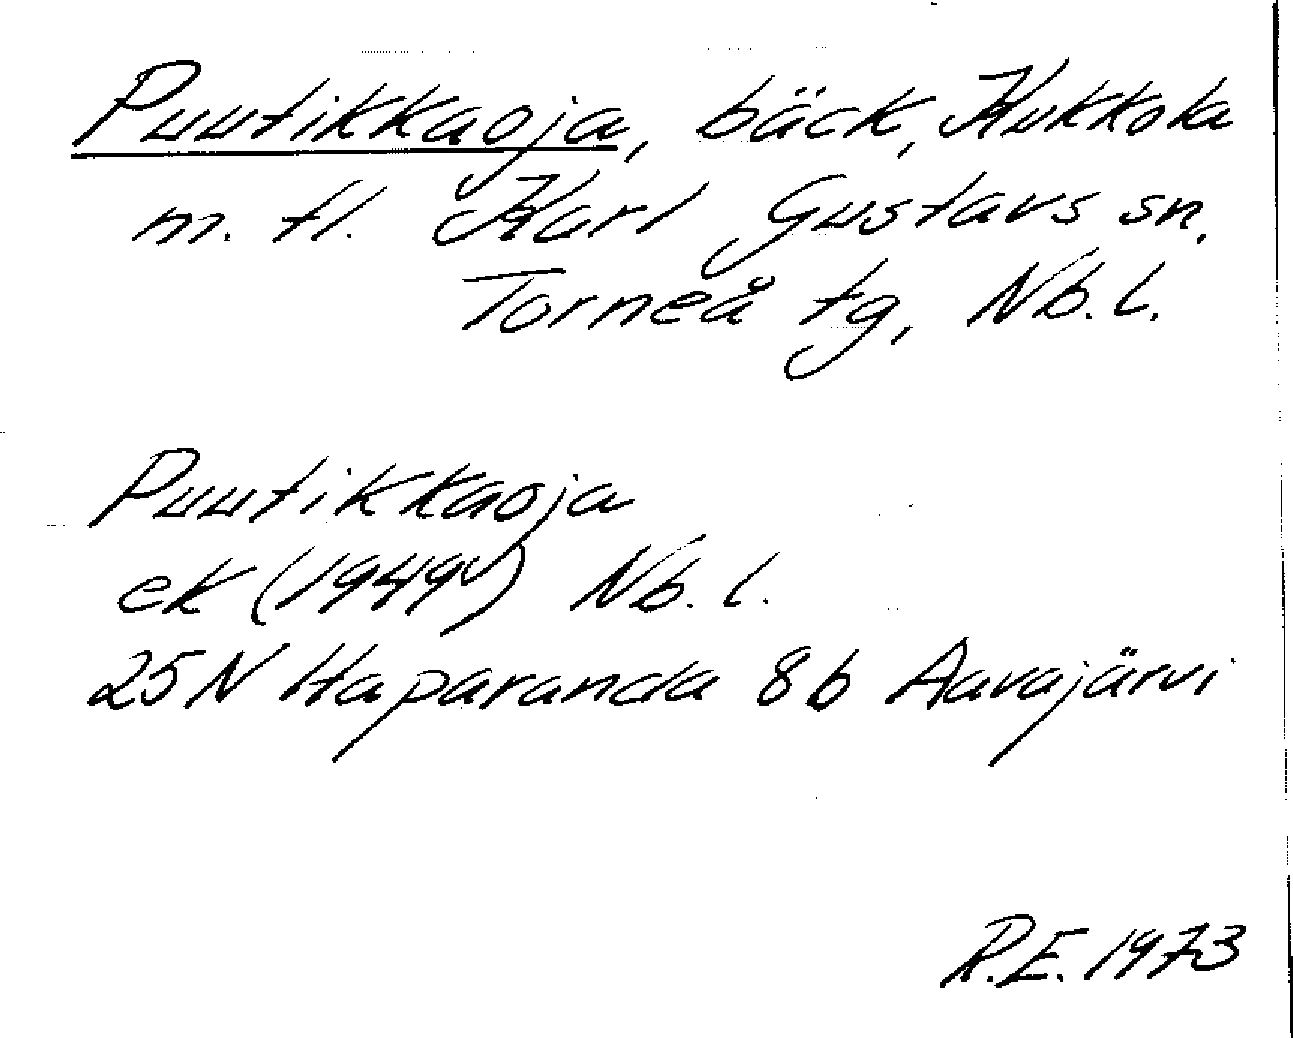 Puutikkaoja, bäck, Kukkola
m. fl. Karl Gustavs sn,
Torneå tg, Nb. l.
Puutikkaoja
ek (1949) Nb. l.
25N Haparanda 8b Aavajärvi
R.E. 1973